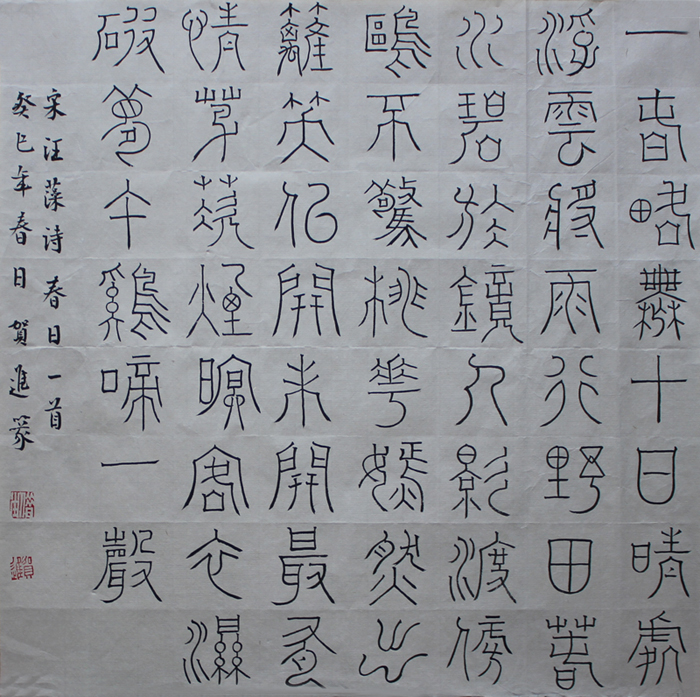 一春略無十日晴處
浮雲將雨行野田春
水碧於鏡人影渡傍
鷗不驚桃花嫣然出
籬笑似開未開最有
情茅茨煙暝客衣濕
破夢午雞啼一聲
宋汪藻诗 春日一首
癸巳年春日 賀進篆